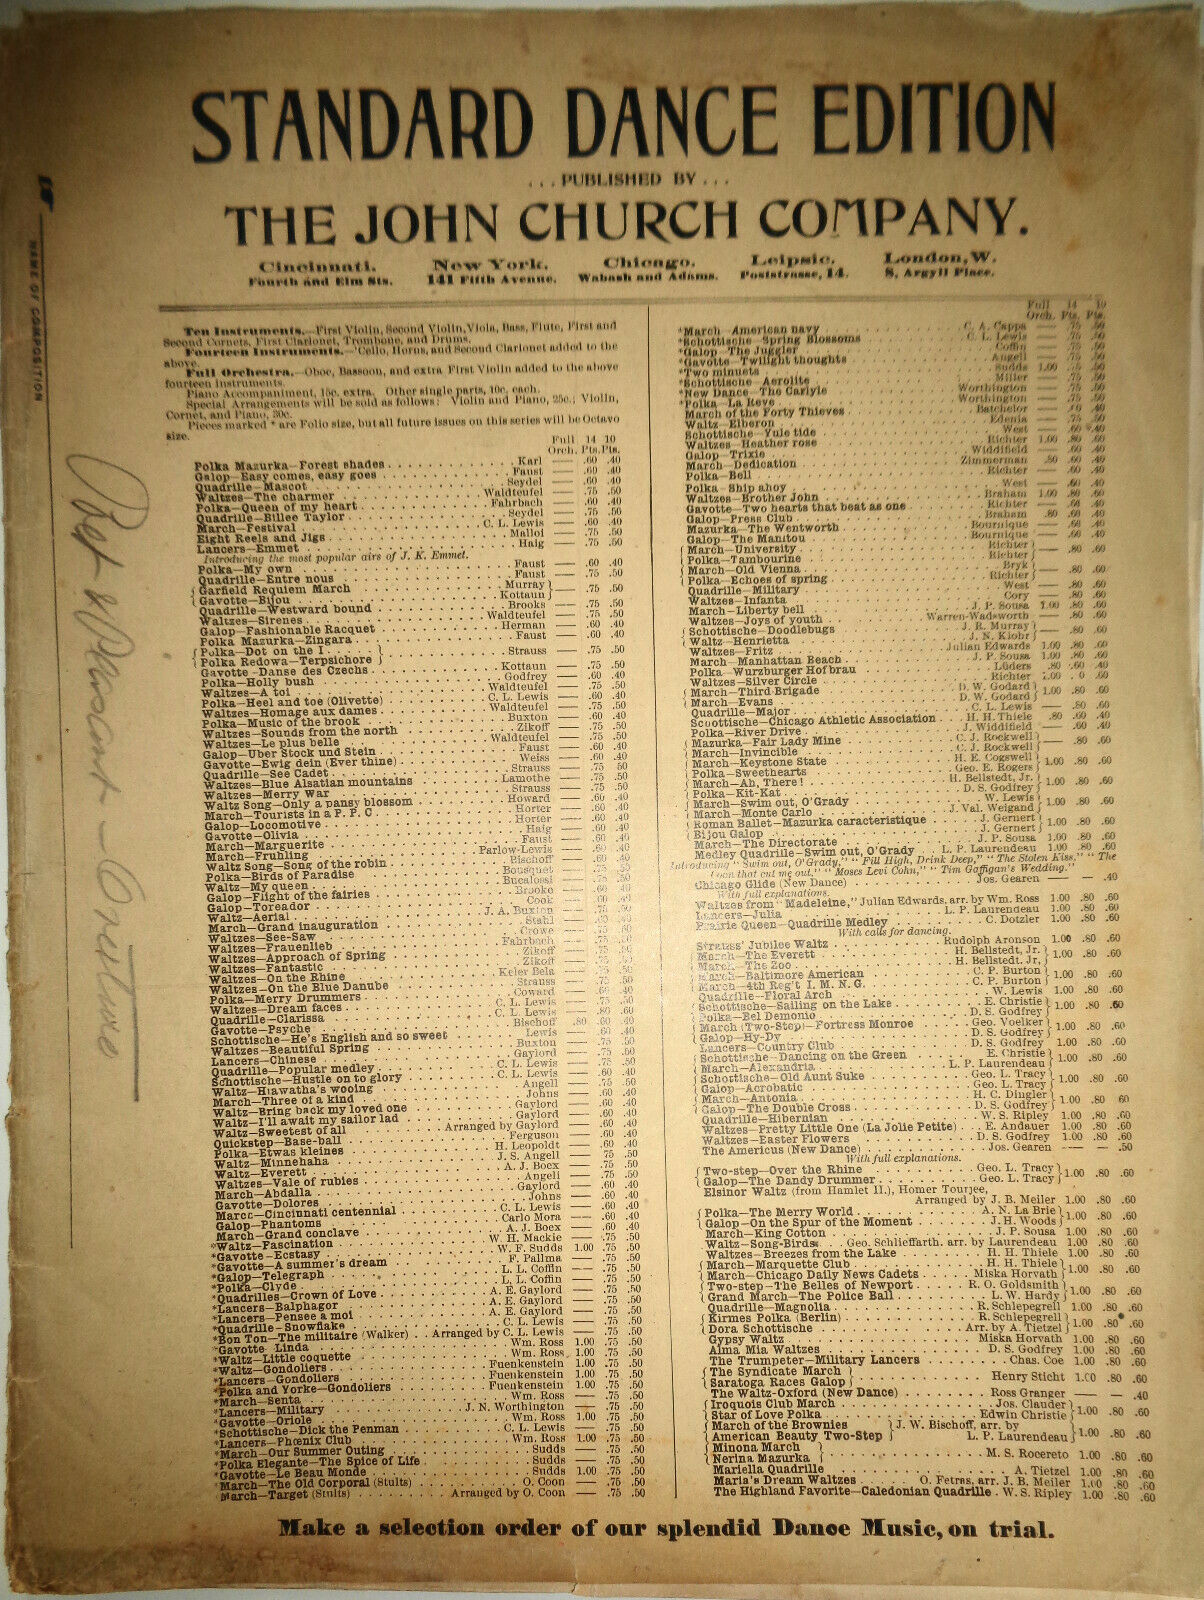 STANDARD DANCE EDITION
...PUBLISHED BY...
THE JOHN CHURCH COMPANY.
Cincinnati. New York. Chicago. Leipsic. London, W.
Fourth and Elm Sts. 141 Fifth Avenue. Wabash and Adams. Poststrasse, 14. 8, Argyll Place.
NAME OF COMPOSITION
Ten Instruments.—First Violin, Second Violin, Viola, Bass, Flute, First and
Second Cornets, First Clarionet, Trombone, and Drums.
Fourteen Instruments.—'Cello, Horns, and Second Clarionet added to the
above.
Full Orchestra.—Oboe, Bassoon, and extra First Violin added to the above
fourteen instruments.
Piano Accompaniment, 15c. extra. Other single parts, 10c. each.
Special Arrangements will be sold as follows: Violin and Piano, 25c.; Violin,
Cornet, and Piano, 30c.
Pieces marked * are Folio size, but all future issues on this series will be Octavo
size.
Full 14 10
Orch. Pts. Pts.
Polka Mazurka—Forest shades Karl — .60 .40
Galop—Easy comes, easy goes Faust — .60 .40
Quadrille—Mascot Seydel — .60 .40
Waltzes—The charmer Waldteufel — .75 .50
Polka—Queen of my heart Fahrbach — .60 .40
Quadrille—Billee Taylor Seydel — .75 .50
March—Festival C. L. Lewis — .60 .40
Eight Reels and Jigs Malloi — .75 .50
Lancers—Emmet Haig — .75 .50
Introducing the most popular airs of J. K. Emmet.
Polka—My own Faust — .60 .40
Quadrille—Entre nous Faust — .75 .50
Garfield Requiem March Murray
Gavotte—Bijou Kottaun — .75 .50
Quadrille—Westward bound Brooks — .75 .50
Waltzes—Sirenes Waldteufel — .75 .50
Galop—Fashionable Racquet Herman — .60 .40
Polka Mazurka—Zingara Faust — .60 .40
Polka—Dot on the I
Polka Redowa—Terpsichore Strauss — .75 .50
Gavotte—Danse des Czechs Kottaun — .75 .50
Polka—Holly bush Godfrey — .60 .40
Waltzes—A toi Waldteufel — .75 .50
Polka—Heel and toe (Olivette) C. L. Lewis — .60 .40
Waltzes—Homage aux dames Waldteufel — .75 .50
Polka—Music of the brook Buxton — .60 .40
Waltzes—Sounds from the north Zikoff — .75 .50
Waltzes—Le plus belle Waldteufel — .75 .50
Galop—Uber Stock und Stein Faust — .60 .40
Gavotte—Ewig dein (Ever thine) Weiss — .60 .40
Quadrille—See Cadet Strauss — .75 .50
Waltzes—Blue Alsatian mountains Lamothe — .75 .50
Waltzes—Merry War Strauss — .75 .50
Waltz Song—Only a pansy blossom Howard — .60 .40
March—Tourists in a P. P. C. Horter — .60 .40
Galop—Locomotive Horter — .60 .40
Gavotte—Olivia Haig — .60 .40
March—Marguerite Faust — .60 .40
March—Fruhling Parlow-Lewis — .60 .40
Waltz Song—Song of the robin Bischoff — .60 .40
Polka—Birds of Paradise Bousquet
Waltz—My queen Bucalossi
Galop—Flight of the fairies Brooke
Galop—Toreador Cook
Waltz—Aerial J. A. Buxton
March—Grand inauguration Stahl
Waltzes—See-Saw Crowe
Waltzes—Frauenlieb Fahrbach
Waltzes—Approach of Spring Zikoff
Waltzes—Fantastic Zikoff
Waltzes—On the Rhine Keler Bela
Waltzes—On the Blue Danube Strauss
Polka—Merry Drummers Coward
Waltzes—Dream faces C. L. Lewis
Quadrille—Clarissa C. L. Lewis
Gavotte—Psyche Bischoff .80 .60 .40
Schottische—He's English and so sweet Lewis — .60 .40
Waltzes—Beautiful Spring Buxton — .75 .50
Lancers—Chinese Gaylord — .75 .50
Quadrille—Popular medley C. L. Lewis — .75 .50
Schottische—Hustle on to glory C. L. Lewis — .60 .40
Waltz—Hiawatha's wooing Angell — .75 .50
March—Three of a kind Johns — .60 .40
Waltz—Bring back my loved one Gaylord — .60 .40
Waltz—I'll await my sailor lad Gaylord — .60 .40
Waltz—Sweetest of all Arranged by Gaylord — .60 .40
Quickstep—Base-ball Ferguson — .60 .40
Polka—Etwas kleines H. Leopoldt — .60 .40
Waltz—Minnehaha J. S. Angell — .75 .50
Waltz—Everett A. J. Boex — .75 .50
Waltz—Vale of rubies Angell — .75 .50
March—Abdalla Gaylord — .60 .40
Gavotte—Dolores Johns — .60 .40
March—Cincinnati centennial C. L. Lewis — .60 .40
Galop—Phantoms Carlo Mora — .60 .40
March—Grand conclave A. J. Boex — .60 .40
*Waltz—Fascination W. H. Mackie — .75 .50
*Gavotte—Ecstasy W. F. Sudds 1.00 .75 .50
*Gavotte—A summer's dream F. Pallma — .75 .50
*Galop—Telegraph L. L. Coffin — .75 .50
*Polka—Clyde L. L. Coffin — .75 .50
*Quadrilles—Crown of Love A. E. Gaylord — .75 .50
*Lancers—Balphagor A. E. Gaylord — .75 .50
*Lancers—Pensee a moi A. E. Gaylord — .75 .50
*Quadrille—Snowflake C. L. Lewis — .75 .50
*Bon Ton—The militaire (Walker) Arranged by C. L. Lewis — .75 .50
*Gavotte—Linda Wm. Ross 1.00 .75 .50
*Waltz—Little coquette Wm. Ross 1.00 .75 .50
*Waltz—Gondoliers Fuenkenstein 1.00 .75 .50
*Lancers—Gondoliers Fuenkenstein 1.00 .75 .50
*Polka and Yorke—Gondoliers Fuenkenstein 1.00 .75 .50
*March—Senta Wm. Ross — .75 .50
*Lancers—Military J. N. Worthington — .75 .50
*Gavotte—Oriole Wm. Ross 1.00 .75 .50
*Schottische—Dick the Penman C. L. Lewis — .75 .50
*Lancers—Phœnix Club Wm. Ross 1.00 .75 .50
*March—Our Summer Outing Sudds — .75 .50
*Polka Elegante—The Spice of Life Sudds — .75 .50
*Gavotte—Le Beau Monde Sudds 1.00 .75 .50
*March—The Old Corporal (Stults) O. Coon — .75 .50
*March—Target (Stults) Arranged by O. Coon — .75 .50
Full 14 10
Orch. Pts. Pts.
*March—American navy C. A. Cappa — .75 .50
*Schottische—Spring Blossoms C. L. Lewis — .75 .50
*Galop—The Juggler Coffin — .75 .50
*Gavotte—Twilight thoughts Angell — .75 .50
*Two minuets Sudds 1.00 .75 .50
*Schottische—Aerolite Miller — .75 .50
*New Dance—The Carlyle Worthington — .75 .50
*Polka—La Reve Worthington — .75 .50
March of the Forty Thieves Batchelor
Waltz—Elberon Edenia
Schottische—Yule tide West
Waltzes—Heather rose Richter 1.00 .80 .60
Galop—Trixie Widdifield
March—Dedication Zimmerman
Polka—Bell Richter
Polka—Ship ahoy West
Waltzes—Brother John Braham 1.00 .80 .60
Gavotte—Two hearts that beat as one Richter
Galop—Press Club Braham .80 .60 .40
Mazurka—The Wentworth Bournique
Galop—The Manitou Bournique
March—University Richter
Polka—Tambourine Richter — .80 .60
March—Old Vienna Bryk
Polka—Echoes of spring Richter — .80 .60
Quadrille—Military West — .80 .60
Waltzes—Infanta Cory — .80 .60
March—Liberty bell J. P. Sousa 1.00 .80 .60
Waltzes—Joys of youth Warren-Wadsworth — .80 .60
Schottische—Doodlebugs J. R. Murray
Waltz—Henrietta J. N. Klohr — .80 .60
Waltzes—Fritz Julian Edwards 1.00 .80 .60
March—Manhattan Beach J. P. Sousa 1.00 .80 .60
Polka—Wurzburger Hofbrau Lüders .80 .60 .40
Waltzes—Silver Circle Richter
March—Third Brigade D. W. Godard
March—Evans D. W. Godard 1.00 .80 .60
Quadrille—Major C. L. Lewis — .80 .60
Schottische—Chicago Athletic Association H. H. Thiele .80 .60 .40
Polka—River Drive J. Widdifield — .60 .40
Mazurka—Fair Lady Mine C. J. Rockwell
March—Invincible C. J. Rockwell — .80 .60
March—Keystone State H. E. Cogswell
Polka—Sweethearts Geo. E. Rogers 1.00 .80 .60
March—Ah, There! H. Bellstedt, Jr.
Polka—Kit-Kat D. S. Godfrey 1.00 .80 .60
March—Swim out, O'Grady W. Lewis
March—Monte Carlo J. Val. Weigand 1.00 .80 .60
Roman Ballet—Mazurka caracteristique J. Gernert
Bijou Galop J. Gernert 1.00 .80 .60
March—The Directorate J. P. Sousa 1.00 .80 .60
Medley Quadrille—Swim out, O'Grady L. P. Laurendeau 1.00 .80 .60
Introducing "Swim out, O'Grady," "Fill High, Drink Deep," "The Stolen Kiss," "The
Coon that cut me out," "Moses Levi Cohn," "Tim Gaffigan's Wedding."
Chicago Glide (New Dance) Jos. Gearen — — .40
With full explanations.
Waltzes from "Madeleine," Julian Edwards, arr. by Wm. Ross 1.00 .80 .60
Lancers—Julia L. P. Laurendeau 1.00 .80 .60
Prairie Queen—Quadrille Medley C. Dotzler 1.00 .80 .60
With calls for dancing.
Strauss' Jubilee Waltz Rudolph Aronson 1.00 .80 .60
March—The Everett H. Bellstedt, Jr.
March—The Zoo H. Bellstedt, Jr. 1.00 .80 .60
March—Baltimore American C. P. Burton
March—4th Reg't I. M. N. G. C. P. Burton 1.00 .80 .60
Quadrille—Floral Arch W. Lewis 1.00 .80 .60
Schottische—Sailing on the Lake E. Christie
Polka—Bel Demonio D. S. Godfrey 1.00 .80 .60
March (Two-Step)—Fortress Monroe Geo. Voelker
Galop—Hy-Dy D. S. Godfrey 1.00 .80 .60
Lancers—Country Club D. S. Godfrey 1.00 .80 .60
Schottische—Dancing on the Green E. Christie
March—Alexandria L. P. Laurendeau 1.00 .80 .60
Schottische—Old Aunt Suke Geo. L. Tracy
Galop—Acrobatic Geo. L. Tracy 1.00 .80 .60
March—Antonia H. C. Dingler
Galop—The Double Cross D. S. Godfrey 1.00 .80 .60
Quadrille—Hibernian W. S. Ripley 1.00 .80 .60
Waltzes—Pretty Little One (La Jolie Petite) E. Andauer 1.00 .80 .60
Waltzes—Easter Flowers D. S. Godfrey 1.00 .80 .60
The Americus (New Dance) Jos. Gearen — — .50
With full explanations.
Two-step—Over the Rhine Geo. L. Tracy
Galop—The Dandy Drummer Geo. L. Tracy 1.00 .80 .60
Elsinor Waltz (from Hamlet II.), Homer Tourjee,
Arranged by J. B. Meiler 1.00 .80 .60
Polka—The Merry World A. N. La Brie
Galop—On the Spur of the Moment J. H. Woods 1.00 .80 .60
March—King Cotton J. P. Sousa 1.00 .80 .60
Waltz—Song-Birds Geo. Schlieffarth, arr. by Laurendeau 1.00 .80 .60
Waltzes—Breezes from the Lake H. H. Thiele 1.00 .80 .60
March—Marquette Club H. H. Thiele
March—Chicago Daily News Cadets Miska Horvath 1.00 .80 .60
Two-step—The Belles of Newport R. O. Goldsmith
Grand March—The Police Ball L. W. Hardy 1.00 .80 .60
Quadrille—Magnolia R. Schlepegrell 1.00 .80 .60
Kirmes Polka (Berlin) R. Schlepegrell
Dora Schottische Arr. by A. Tietzel 1.00 .80 .60
Gypsy Waltz Miska Horvath 1.00 .80 .60
Alma Mia Waltzes D. S. Godfrey 1.00 .80 .60
The Trumpeter—Military Lancers Chas. Coe 1.00 .80 .60
The Syndicate March
Saratoga Races Galop Henry Sticht 1.00 .80 .60
The Waltz-Oxford (New Dance) Ross Granger — — .40
Iroquois Club March Jos. Clauder
Star of Love Polka Edwin Christie 1.00 .80 .60
March of the Brownies J. W. Bischoff, arr. by
American Beauty Two-Step L. P. Laurendeau 1.00 .80 .60
Minona March
Nerina Mazurka M. S. Rocereto 1.00 .80 .60
Mariella Quadrille A. Tietzel 1.00 .80 .60
Maria's Dream Waltzes O. Fetras, arr. J. B. Meiler 1.00 .80 .60
The Highland Favorite—Caledonian Quadrille W. S. Ripley 1.00 .80 .60
Make a selection order of our splendid Dance Music, on trial.
Poet & Peasant - Overture